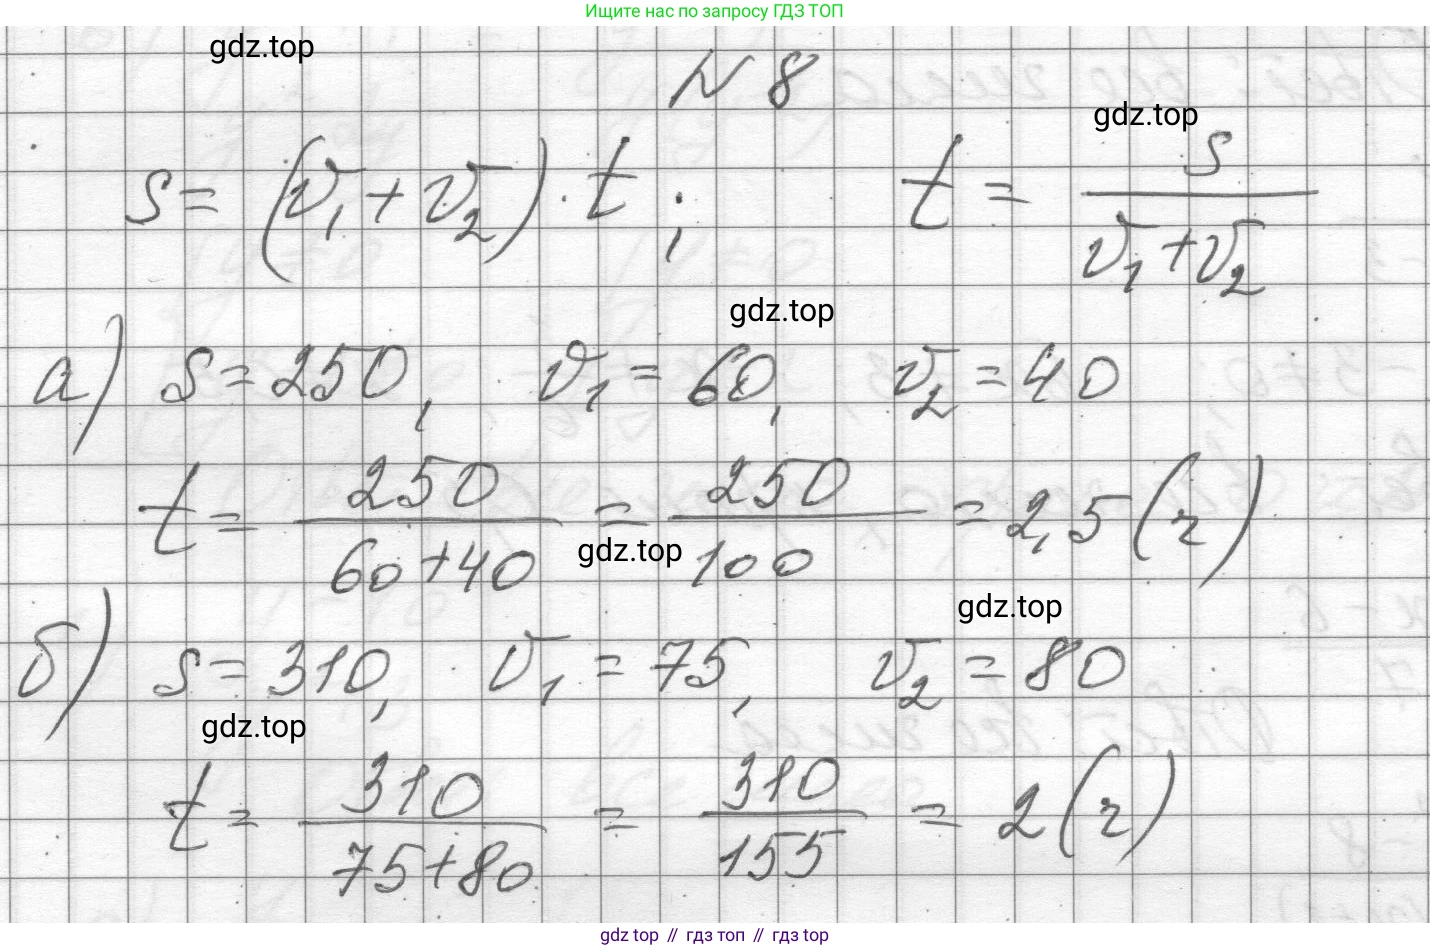 Ищите нас по запросу ГДЗ ТОП
gdz.top
N 8
gdz.top
s = (v₁ + v₂) · t ; t = s / (v₁ + v₂)
gdz.top
а) s = 250, v₁ = 60, v₂ = 40
t = 250 / (60 + 40) = 250 / 100 = 2,5 (ч)
gdz.top
gdz.top
б) s = 310, v₁ = 75, v₂ = 80
gdz.top
t = 310 / (75 + 80) = 310 / 155 = 2 (ч)
gdz top // гдз топ // гдз top